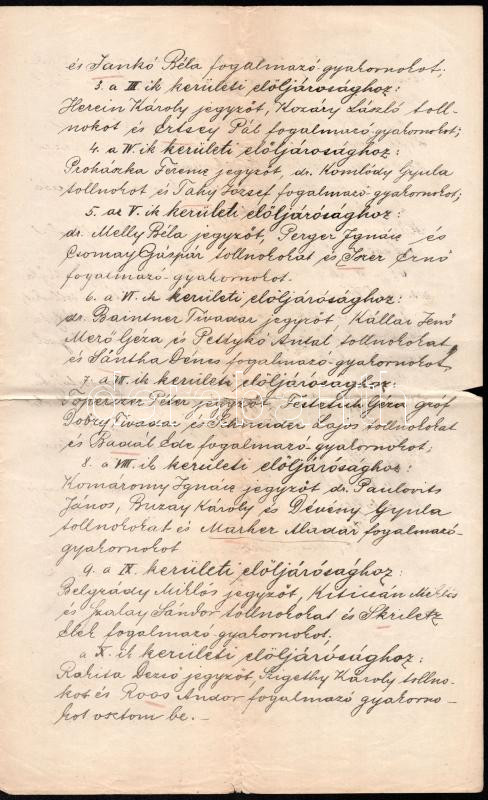 és Jankó Béla fogalmazó-gyakornokot;
3. a III. ik kerületi elöljárósághoz:
Herein Károly jegyzőt, Kozáry László toll-
nokot és Ertsey Pál fogalmazó-gyakornokot;
4. a IV. ik kerületi elöljárósághoz:
Proházka Ferenc jegyzőt, dr. Komlódy Gyula
tollnokot és Tahy József fogalmazó-gyakornokot;
5. az V. ik kerületi elöljárósághoz:
dr. Melly Béla jegyzőt, Perger Ignác és
Csomay Gáspár tollnokokat és Iszer Ernő
fogalmazó-gyakornokot.
6. a VI. ik kerületi elöljárósághoz:
dr. Baintner Tivadar jegyzőt, Kállai Jenő
Merő Géza és Petykó Antal tollnokokat
és Sántha Dénes fogalmazó-gyakornokot,
7. a VII. ik kerületi elöljárósághoz:
Péter jegyzőt, Festetich Géza gróf
Dobry Tivadar és Schneider Lajos tollnokokat
és Badál Ede fogalmazó-gyakornokot;
8. a VIII. ik kerületi elöljárósághoz:
Komáromy Ignác jegyzőt dr. Paulovits
János, Buzay Károly és Dévény Gyula
tollnokokat és Marher Aladár fogalmazó-
gyakornokot
9. a IX. kerületi elöljárósághoz:
Belgrády Miklós jegyzőt, Kiticsán Miklós
és Szalay Sándor tollnokokat és Skriletz
Elek fogalmazó-gyakornokot;
a X. ik kerületi elöljárósághoz:
Rakita Dezső jegyzőt, Szigethy Károly tollno-
kot és Roos Andor fogalmazó gyakorno-
kot osztom be. –